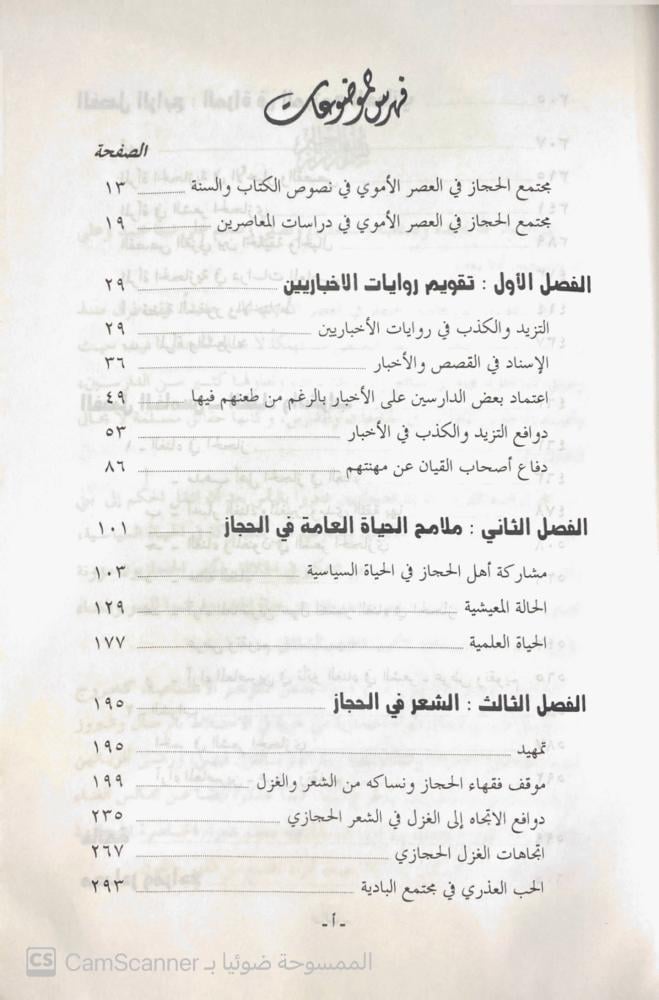 فهرس الموضوعات
الصفحة
مجتمع الحجاز في العصر الأموي في نصوص الكتاب والسنة ١٣
مجتمع الحجاز في العصر الأموي في دراسات المعاصرين ١٩
الفصل الأول : تقويم روايات الاخباريين ٢٩
التزيد والكذب في روايات الأخباريين ٢٩
الإسناد في القصص والأخبار ٣٦
اعتماد بعض الدارسين على الأخبار بالرغم من طعنهم فيها ٤٩
دوافع التزيد والكذب في الأخبار ٥٣
دفاع أصحاب القيان عن مهنتهم ٨٦
الفصل الثاني : ملامح الحياة العامة في الحجاز ١٠١
مشاركة أهل الحجاز في الحياة السياسية ١٠٣
الحالة المعيشية ١٢٩
الحياة العلمية ١٧٧
الفصل الثالث : الشعر في الحجاز ١٩٥
تمهيد ١٩٥
موقف فقهاء الحجاز ونساكه من الشعر والغزل ١٩٩
دوافع الاتجاه إلى الغزل في الشعر الحجازي ٢٣٥
اتجاهات الغزل الحجازي ٢٦٧
الحب العذري في مجتمع البادية ٢٩٣
- أ -
CS الممسوحة ضوئيا بـ CamScanner